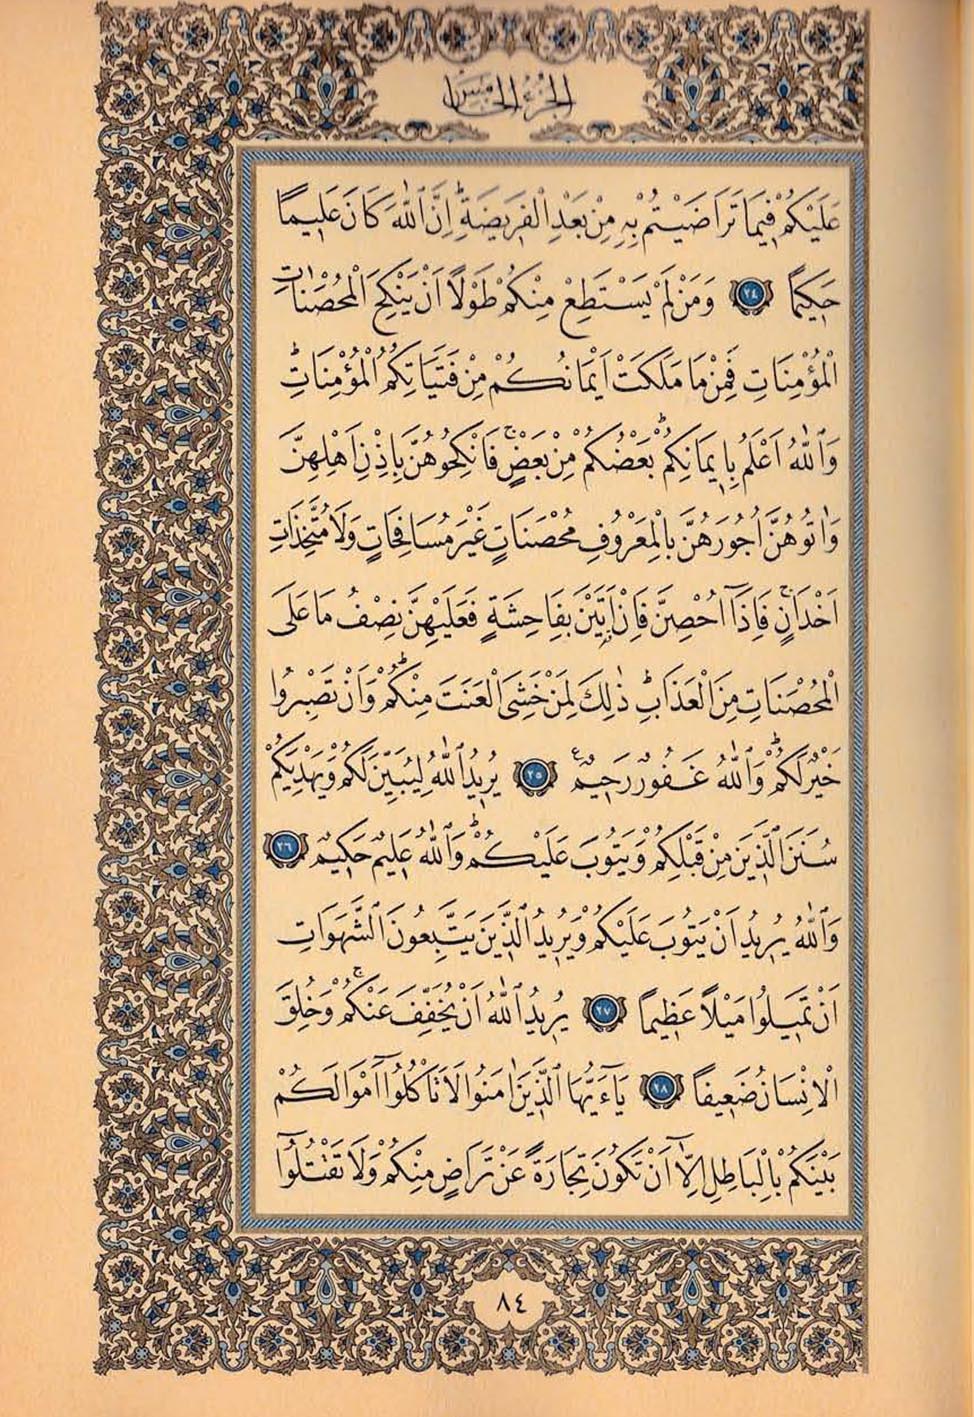 الجزء الخامس
عَلَيْكُمْ فِيمَا تَرَاضَيْتُمْ بِهِ مِنْ بَعْدِ الْفَرِيضَةِۜ اِنَّ ٱللّٰهَ كَانَ عَلِيمًا
حَكِيمًا ٢٤ وَمَنْ لَمْ يَسْتَطِعْ مِنْكُمْ طَوْلًا اَنْ يَنْكِحَ الْمُحْصَنَاتِ
الْمُؤْمِنَاتِ فَمِنْ مَا مَلَكَتْ اَيْمَانُكُمْ مِنْ فَتَيَاتِكُمُ الْمُؤْمِنَاتِۜ
وَٱللّٰهُ اَعْلَمُ بِاِيمَانِكُمْۜ بَعْضُكُمْ مِنْ بَعْضٍۚ فَانْكِحُوهُنَّ بِاِذْنِ اَهْلِهِنَّ
وَاٰتُوهُنَّ اُجُورَهُنَّ بِالْمَعْرُوفِ مُحْصَنَاتٍ غَيْرَ مُسَافِحَاتٍ وَلَا مُتَّخِذَاتِ
اَخْدَانٍۚ فَاِذَٓا اُحْصِنَّ فَاِنْ اَتَيْنَ بِفَاحِشَةٍ فَعَلَيْهِنَّ نِصْفُ مَا عَلَى
الْمُحْصَنَاتِ مِنَ الْعَذَابِۜ ذٰلِكَ لِمَنْ خَشِىَ الْعَنَتَ مِنْكُمْۜ وَاَنْ تَصْبِرُوا
خَيْرٌ لَكُمْۜ وَٱللّٰهُ غَفُورٌ رَحِيمٌ۟ ٢٥ يُرِيدُ ٱللّٰهُ لِيُبَيِّنَ لَكُمْ وَيَهْدِيَكُمْ
سُنَنَ الَّذِينَ مِنْ قَبْلِكُمْ وَيَتُوبَ عَلَيْكُمْۜ وَٱللّٰهُ عَلِيمٌ حَكِيمٌ ٢٦
وَٱللّٰهُ يُرِيدُ اَنْ يَتُوبَ عَلَيْكُمْ وَيُرِيدُ الَّذِينَ يَتَّبِعُونَ الشَّهَوَاتِ
اَنْ تَمِيلُوا مَيْلًا عَظِيمًا ٢٧ يُرِيدُ ٱللّٰهُ اَنْ يُخَفِّفَ عَنْكُمْۚ وَخُلِقَ
الْاِنْسَانُ ضَعِيفًا ٢٨ يَٓا اَيُّهَا الَّذِينَ اٰمَنُوا لَا تَأْكُلُٓوا اَمْوَالَكُمْ
بَيْنَكُمْ بِالْبَاطِلِ اِلَّٓا اَنْ تَكُونَ تِجَارَةً عَنْ تَرَاضٍ مِنْكُمْ وَلَا تَقْتُلُٓوا
٨٤